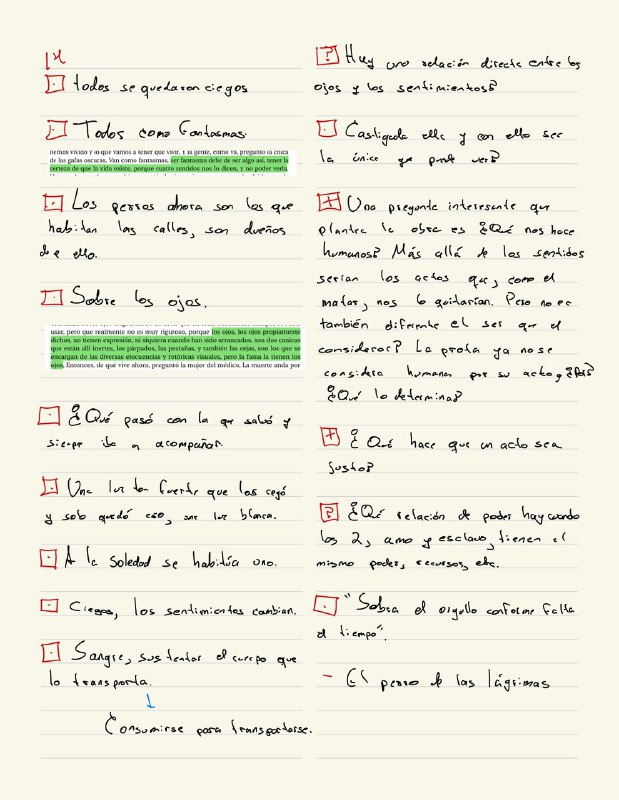 todos se quedaron ciegos
Todos como fantasmas.
hemos vivido y lo que vamos a tener que vivir. Y la gente, como va, preguntó la chica
de las gafas oscuras. Van como fantasmas, ser fantasma debe de ser algo así, tener la
certeza de que la vida existe, porque cuatro sentidos nos lo dicen, y no poder verla.
Los perros ahora son los que
habitan las calles, son dueños
de ello.
Sobre los ojos.
usar, pero que realmente no es muy riguroso, porque los ojos, los ojos propiamente
dichos, no tienen expresión, ni siquiera cuando han sido arrancados, son dos canicas
que están allí inertes, los párpados, las pestañas, y también las cejas, son los que se
encargan de las diversas elocuencias y retóricas visuales, pero la fama la tienen los
ojos. Entonces, de qué vive ahora, preguntó la mujer del médico. La muerte anda por
¿Qué pasó con la que salvó y
siempre iba a acompañar
Una luz tan fuerte que los cegó
y solo quedó eso, una luz blanca.
A la soledad se habitúa uno.
Ciegos, los sentimientos cambian.
Sangre, sustentar el cuerpo que
lo transporta.
Consumirse para transportarse.
? Hay una relación directa entre los
ojos y los sentimientos?
Castigada ella y con ello ser
la única que puede ver?
+ Una pregunta interesante que
plantea la obra es ¿Qué nos hace
humanos? Más allá de los sentidos
serían los actos que, como el
matar, nos lo quitarían. Pero no es
también diferente el ser que el
considerar? La prota ya no se
considera humana por su acto,
¿Qué lo determina?
+ ¿Qué hace que un acto sea
justo?
? ¿Qué relación de poder hay cuando
los 2, amo y esclavo, tienen el
mismo poder, recursos, etc.
"Sobra el orgullo conforme falta
el tiempo".
- El perro de las lágrimas